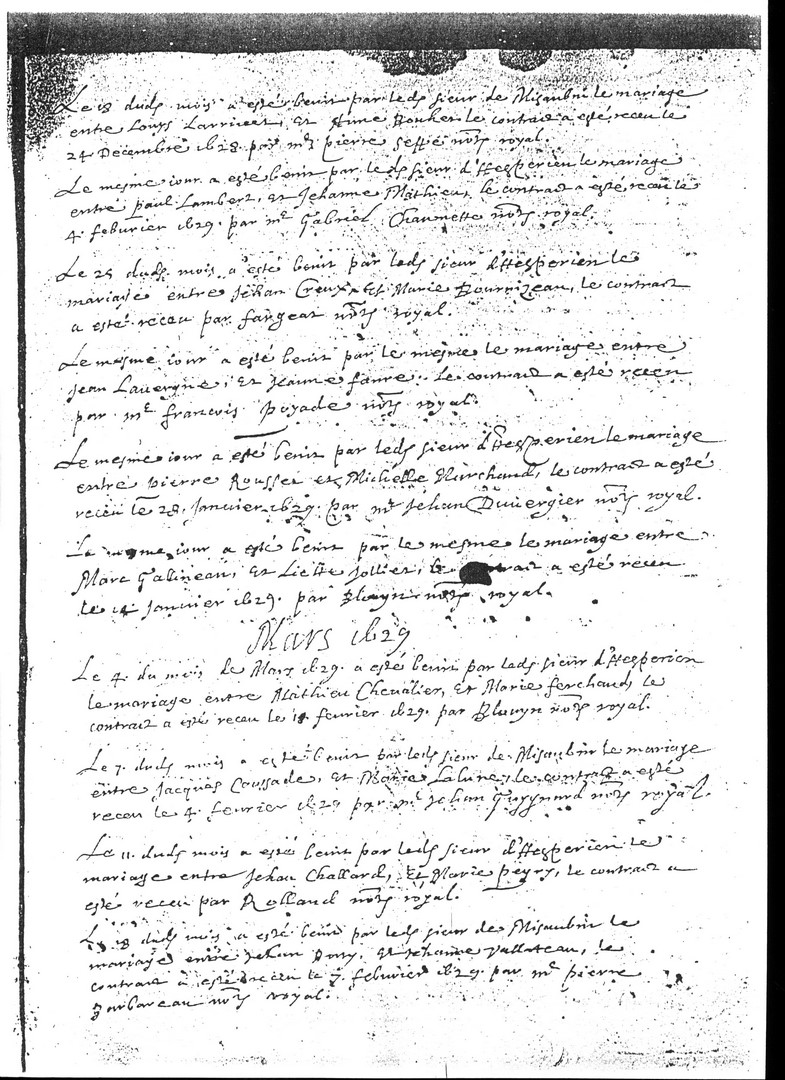 Le 18 duds mois a esté benit par leds sieur de Misaubin le mariage
entre Louys Larriveet, Et Anne Boucher le contract a esté receu le
24 Decembre 1628. par mr pierre seffé nore royal.
Le mesme iour a esté benit par leds sieur d'Hesperien le mariage
entre paul Lambert, Et Jehanne Mathieu, le contract a esté receu le
4. feburier 1629. par mr Gabriel Chaumette nore royal.
Le 25 duds mois a esté benit par leds sieur d'Hesperien le
mariage entre Jehan Creux Et Marie Bournizeau, le contract
a esté receu par fargeat nore royal.
Le mesme iour a esté benit par le mesme le mariage entre
Jean Lavergne, Et Jeanne faure. le contract a esté receu
par me francois poyade nore royal.
Le mesme iour a esté benit par leds sieur d'Hesperien le mariage
entre pierre Rousset et Michelle Marchand, le contract a esté
receu le 28. Janvier 1629. par mr Jehan Duvergier nore royal.
Le mesme iour a esté benit par le mesme le mariage entre
Marc Galineau, Et Liette Jollier, le a esté receu
le 14 Janvier 1629. par Blouyn nore royal.
Mars 1629
Le 4. du mois de Mars 1629. a esté benit par leds sieur d'Hesperien
le mariage entre Mathieu Chevalier, Et Marie ferchaud, le
contract a esté receu le 11. fevrier 1629. par Blouyn nore royal.
Le 7. duds mois a esté benit par leds sieur de Misaubin le mariage
entre Jacques Coussade, Et Marie Lalune, le contract a esté
receu le 4. fevrier 1629 par mr Jehan Guygnard nore royal.
Le 11. duds mois a esté benit par leds sieur d'Hesperien le
mariage entre Jehan Challard, Et Marie peyry, le contract a
esté receu par Rolland nore royal.
Le 18 duds mois a esté benit par leds sieur de Misaubin le
mariage entre Jehan Et Jehanne Vallateau, le
contract a esté receu le 7. feburier 1629. par mr pierre
Barbareau nore royal.